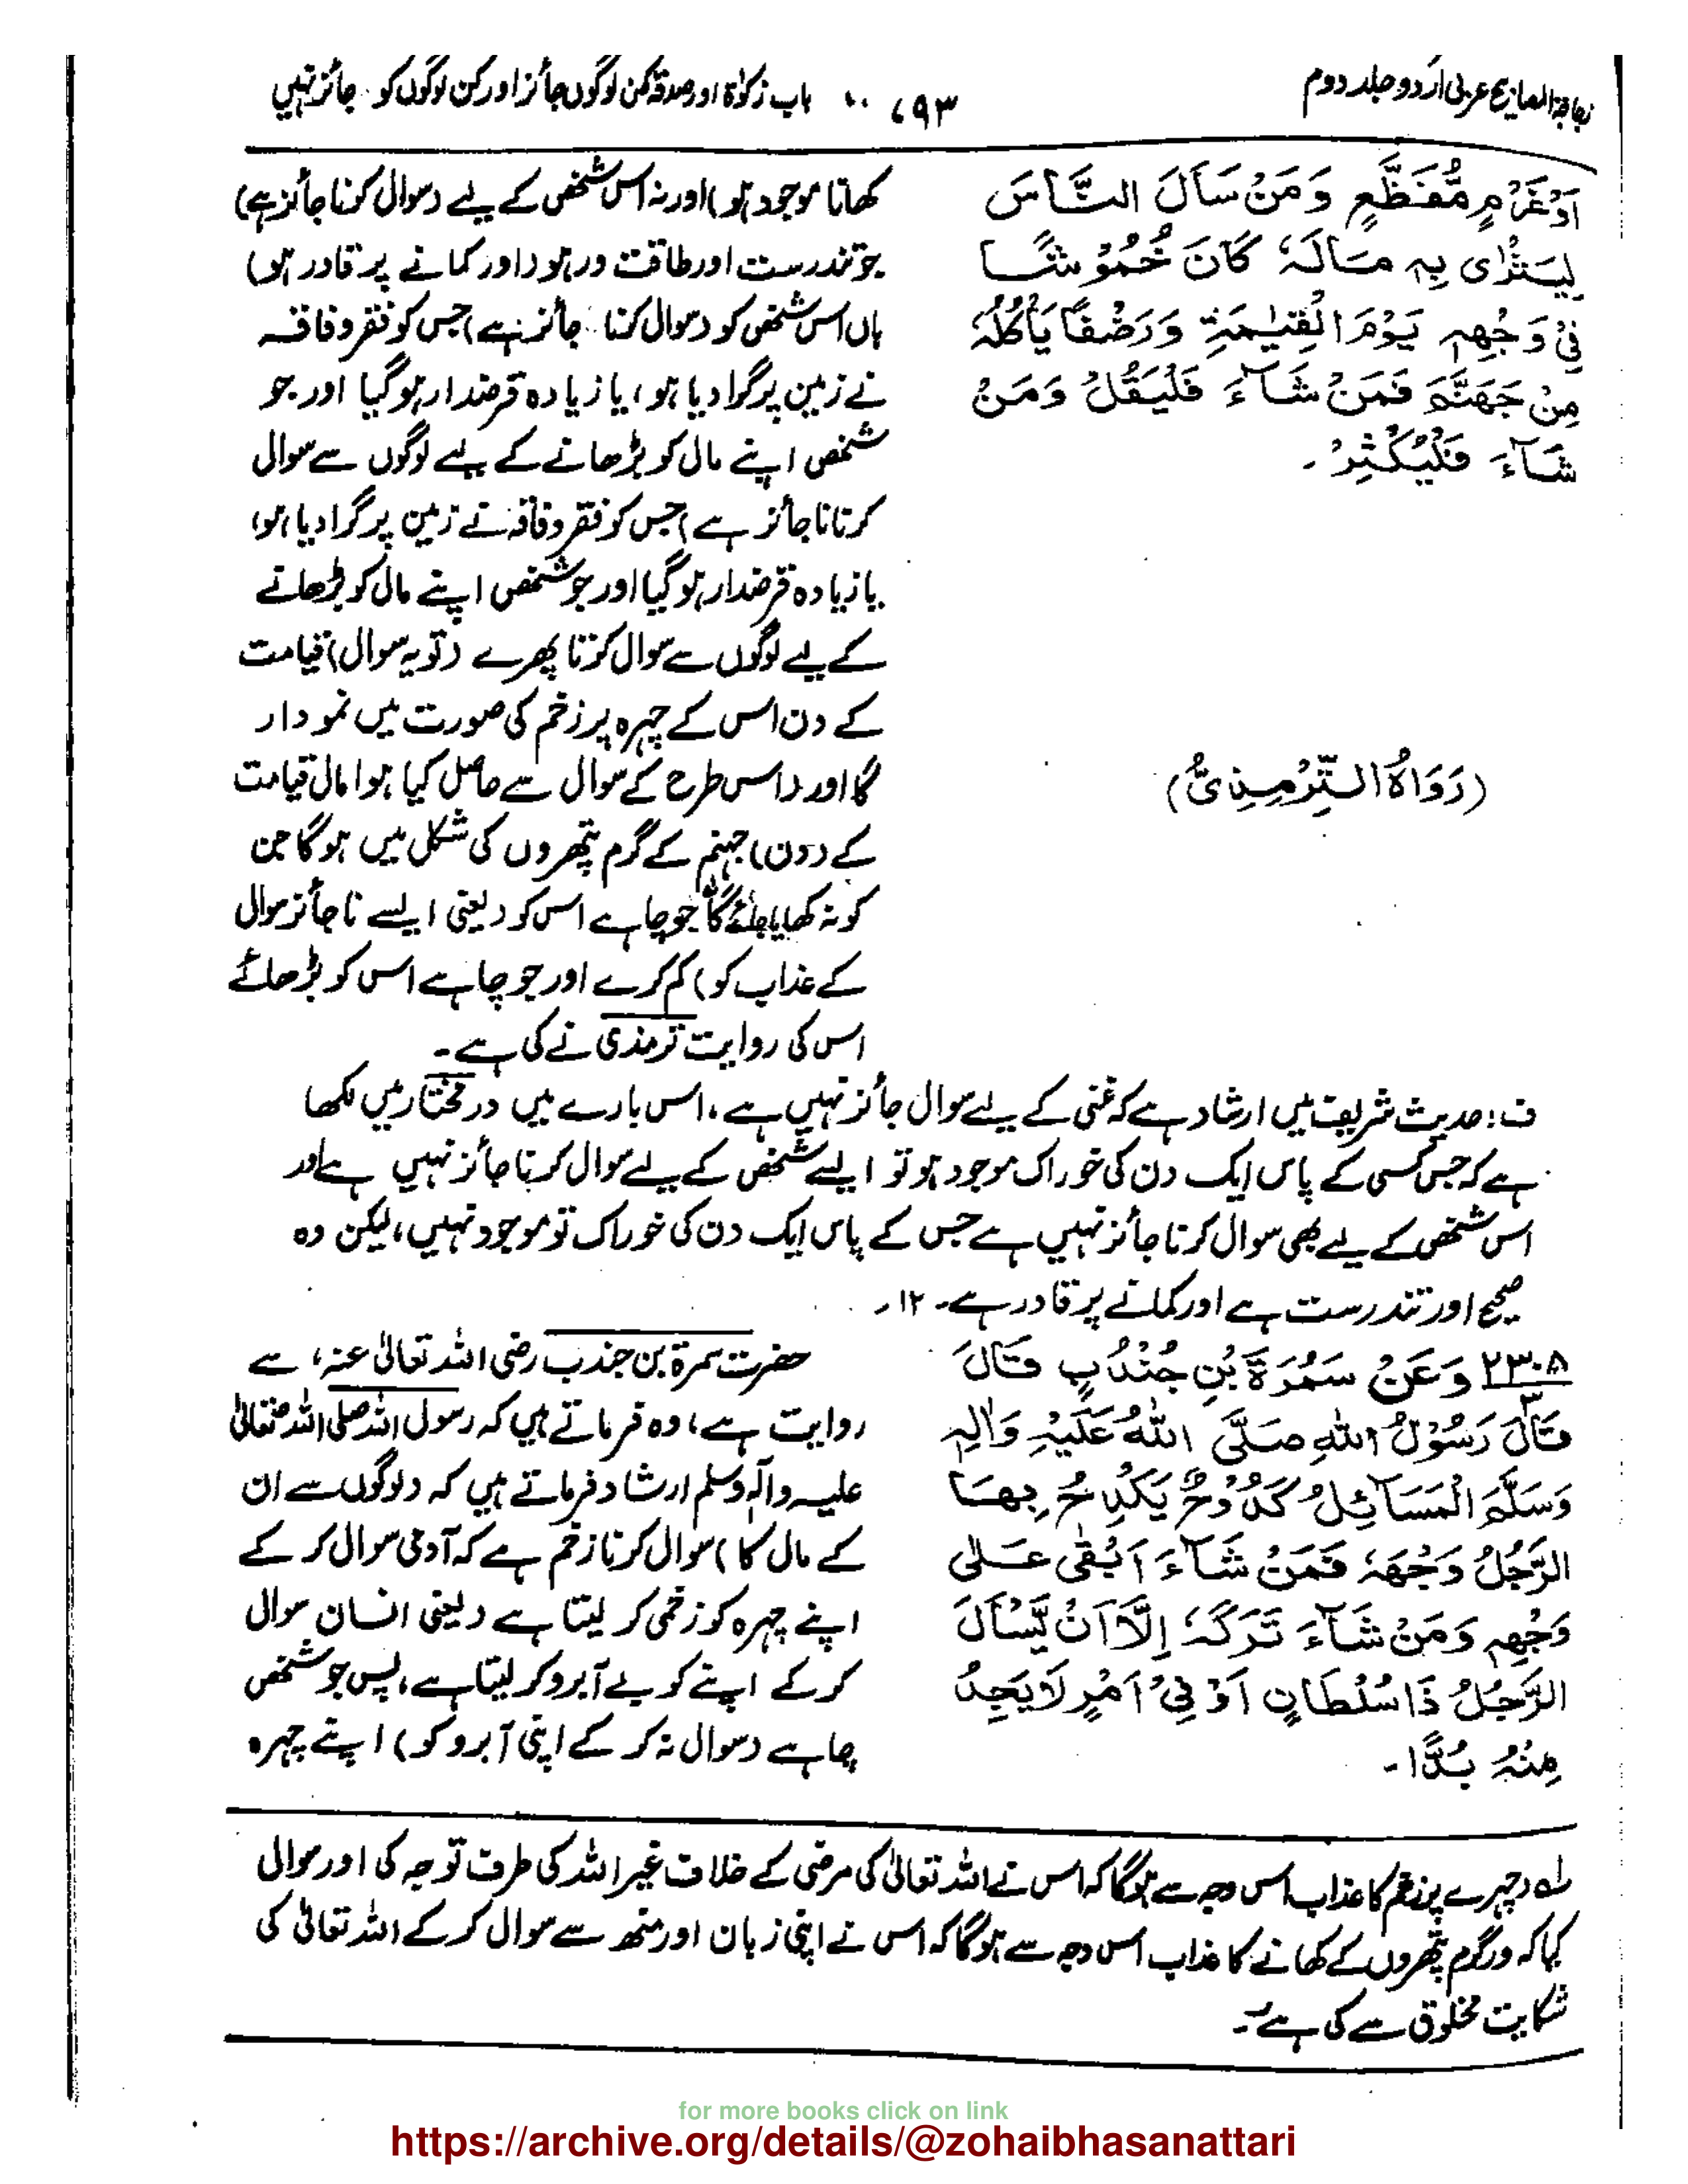 زجاجۃ المصابیح عربی اردو جلد دوم
۶۹۳
باب زکوٰۃ اور صدقہ کن لوگوں جائز اور کن لوگوں کو جائز نہیں
اَوْ غَرَمٍ مُّفَظَّعٍ وَمَنْ سَاَلَ النَّاسَ
لِيَثْرٰى بِهٖ مَالَهٗ كَانَ خُمُوْشًا
فِيْ وَجْهِهٖ يَوْمَ الْقِيٰمَةِ وَرَضْفًا يَأْكُلُهٗ
مِنْ جَهَنَّمَ فَمَنْ شَآءَ فَلْيَقُلْ وَمَنْ
شَآءَ فَلْيُكْثِرْ۔
(رَوَاهُ التِّرْمِذِىُّ)
کھانا موجود ہو) اور نہ اس شخص کے لیے (سوال کرنا جائز ہے)
جو تندرست اور طاقت ور ہو (اور کمانے پر قادر ہو)
ہاں اس شخص کو (سوال کرنا جائز ہے) جس کو فقر و فاقہ
نے زمین پر گرا دیا ہو، یا زیادہ قرضدار ہو گیا اور جو
شخص اپنے مال کو بڑھانے کے لیے لوگوں سے سوال
کرنا ناجائز ہے) جس کو فقر و فاقہ نے زمین پر گرا دیا ہو،
یا زیادہ قرضدار ہو گیا اور جو شخص اپنے مال کو بڑھانے
کے لیے لوگوں سے سوال کرتا پھرے (تو یہ سوال) قیامت
کے دن اس کے چہرہ پر زخم کی صورت میں نمودار
گا اور (اس طرح کے سوال سے حاصل کیا ہوا مال قیامت
کے (دن) جہنم کے گرم پتھروں کی شکل میں ہوگا جن
کو نہ کھایا جائے گا جو چاہے اس کو (یعنی ایسے ناجائز سوال
کے عذاب کو) کم کرے اور جو چاہے اس کو بڑھائے
اس کی روایت ترمذی نے کی ہے۔
ف: حدیث شریف میں ارشاد ہے کہ غنی کے لیے سوال جائز نہیں ہے، اس بارے میں در مختار میں لکھا
ہے کہ جس کسی کے پاس ایک دن کی خوراک موجود ہو تو ایسے شخص کے لیے سوال کرنا جائز نہیں ہے اور
اس شخص کے لیے بھی سوال کرنا جائز نہیں ہے جس کے پاس ایک دن کی خوراک تو موجود نہیں، لیکن وہ
صحیح اور تندرست ہے اور کمانے پر قادر ہے۔ ۱۲۔
۲۳۰۵ وَعَنْ سَمُرَةَ بْنِ جُنْدُبٍ قَالَ
قَالَ رَسُوْلُ اللهِ صَلَّى اللهُ عَلَيْهِ وَاٰلِهٖ
وَسَلَّمَ الْمَسَآئِلُ كُدُوْحٌ يَكْدَحُ بِهَا
الرَّجُلُ وَجْهَهٗ فَمَنْ شَآءَ اَبْقٰى عَلٰى
وَجْهِهٖ وَمَنْ شَآءَ تَرَكَهٗ اِلَّا اَنْ يَّسْاَلَ
الرَّجُلُ ذَا سُلْطَانٍ اَوْ فِيْ اَمْرٍ لَا يَجِدُ
مِنْهُ بُدًّا۔
حضرت سمرۃ بن جندب رضی اللہ تعالیٰ عنہ، سے
روایت ہے، وہ فرماتے ہیں کہ رسول اللہ صلی اللہ تعالیٰ
علیہ وآلہ وسلم ارشاد فرماتے ہیں کہ (لوگوں سے ان
کے مال کا) سوال کرنا زخم ہے کہ آدمی سوال کر کے
اپنے چہرہ کو زخمی کر لیتا ہے (یعنی انسان سوال
کر کے اپنے کو بے آبرو کر لیتا ہے، پس جو شخص
چاہے (سوال نہ کر کے اپنی آبرو کو) اپنے چہرہ
لہ (چہرے پر زخم کا عذاب اس وجہ سے ہوگا کہ اس نے اللہ تعالیٰ کی مرضی کے خلاف غیر اللہ کی طرف توجہ کی اور سوال
کیا کہ ور گرم پتھروں کے کھانے کا عذاب اس وجہ سے ہوگا کہ اس نے اپنی زبان اور منھ سے سوال کر کے اللہ تعالیٰ کی
شکایت مخلوق سے کی ہے۔
for more books click on link
https://archive.org/details/@zohaibhasanattari